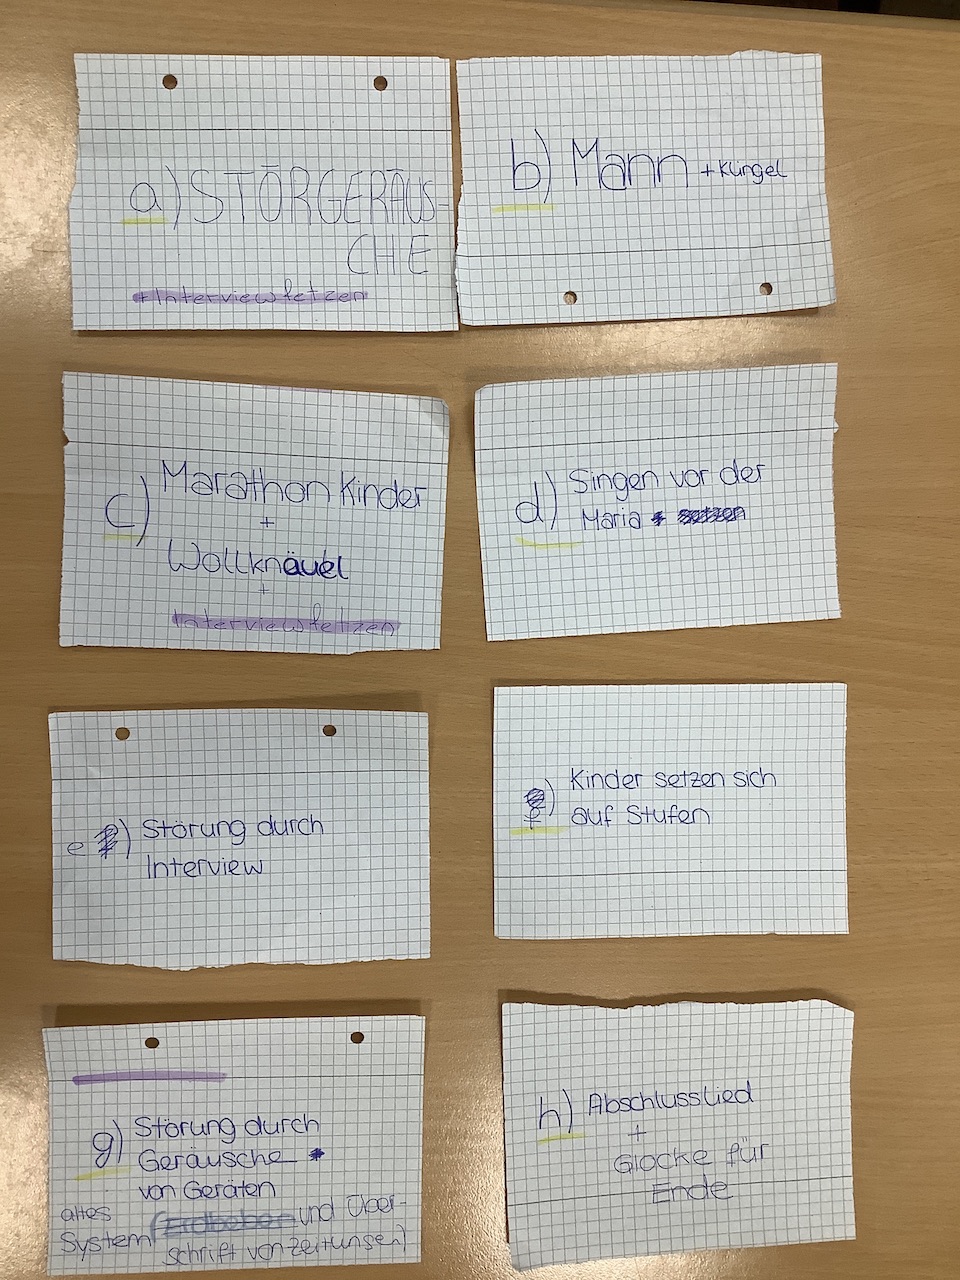 a) STÖRGERÄUS-
CHE
+Interviewfetzen
b) Mann + Klingel
c) Marathon Kinder
+
Wollknäuel
+
Interviewfetzen
d) Singen vor der
Maria
e) Störung durch
Interview
f) Kinder setzen sich
auf Stufen
g) Störung durch
Geräusche
von Geräten
altes
System (Erdbeben und Über-
schrift von Zeitungen)
h) Abschlusslied
+
Glocke für
Ende